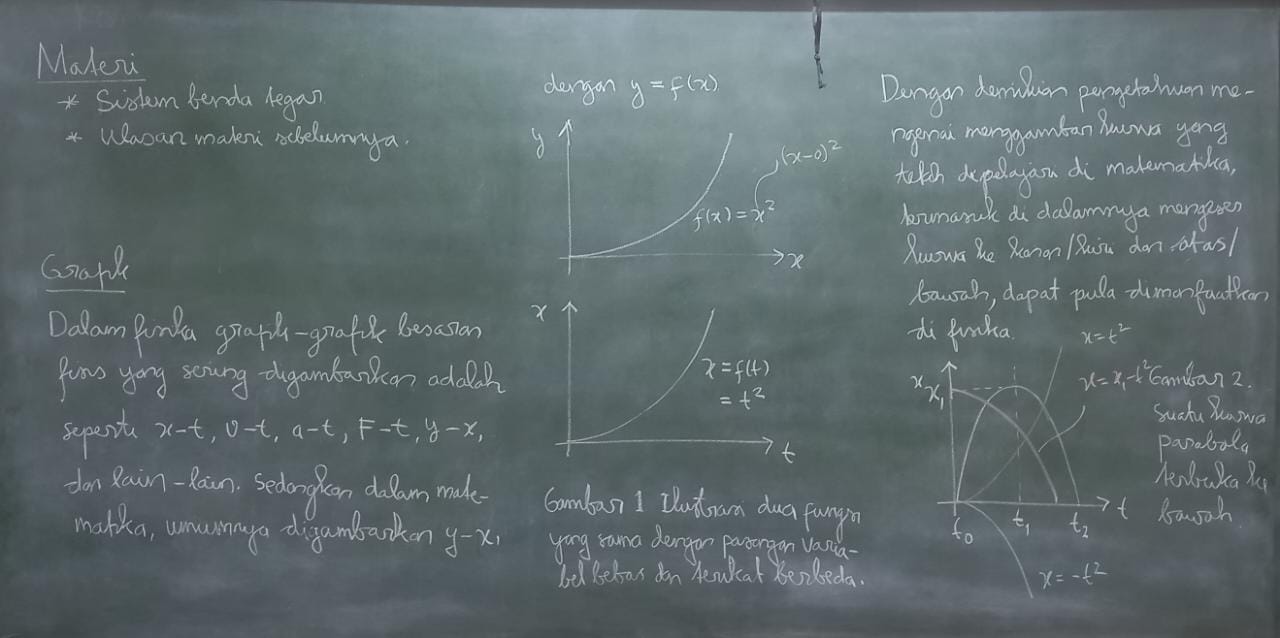 Materi
* Sistem benda tegar.
* Ulasan materi sebelumnya.
Graph
Dalam fisika graph-grafik besaran
fisis yang sering digambarkan adalah
seperti x-t, v-t, a-t, F-t, y-x,
dan lain-lain. Sedangkan dalam mate-
matika, umumnya digambarkan y-x,
dengan y = f(x)
y
(x-0)²
f(x) = x²
x
x
x = f(t)
= t²
t
Gambar 1 Ilustrasi dua fungsi
yang sama dengan pasangan varia-
bel bebas dan terikat berbeda.
Dengan demikian pengetahuan me-
ngenai menggambar kurva yang
telah dipelajari di matematika,
termasuk di dalamnya menggeser
kurva ke kanan/kiri dan atas/
bawah, dapat pula dimanfaatkan
di fisika.
x = t²
x
x₁
x = x₁-t²
Gambar 2.
suatu kurva
parabola
terbuka ke
bawah.
t₀
t₁
t₂
t
x = -t²